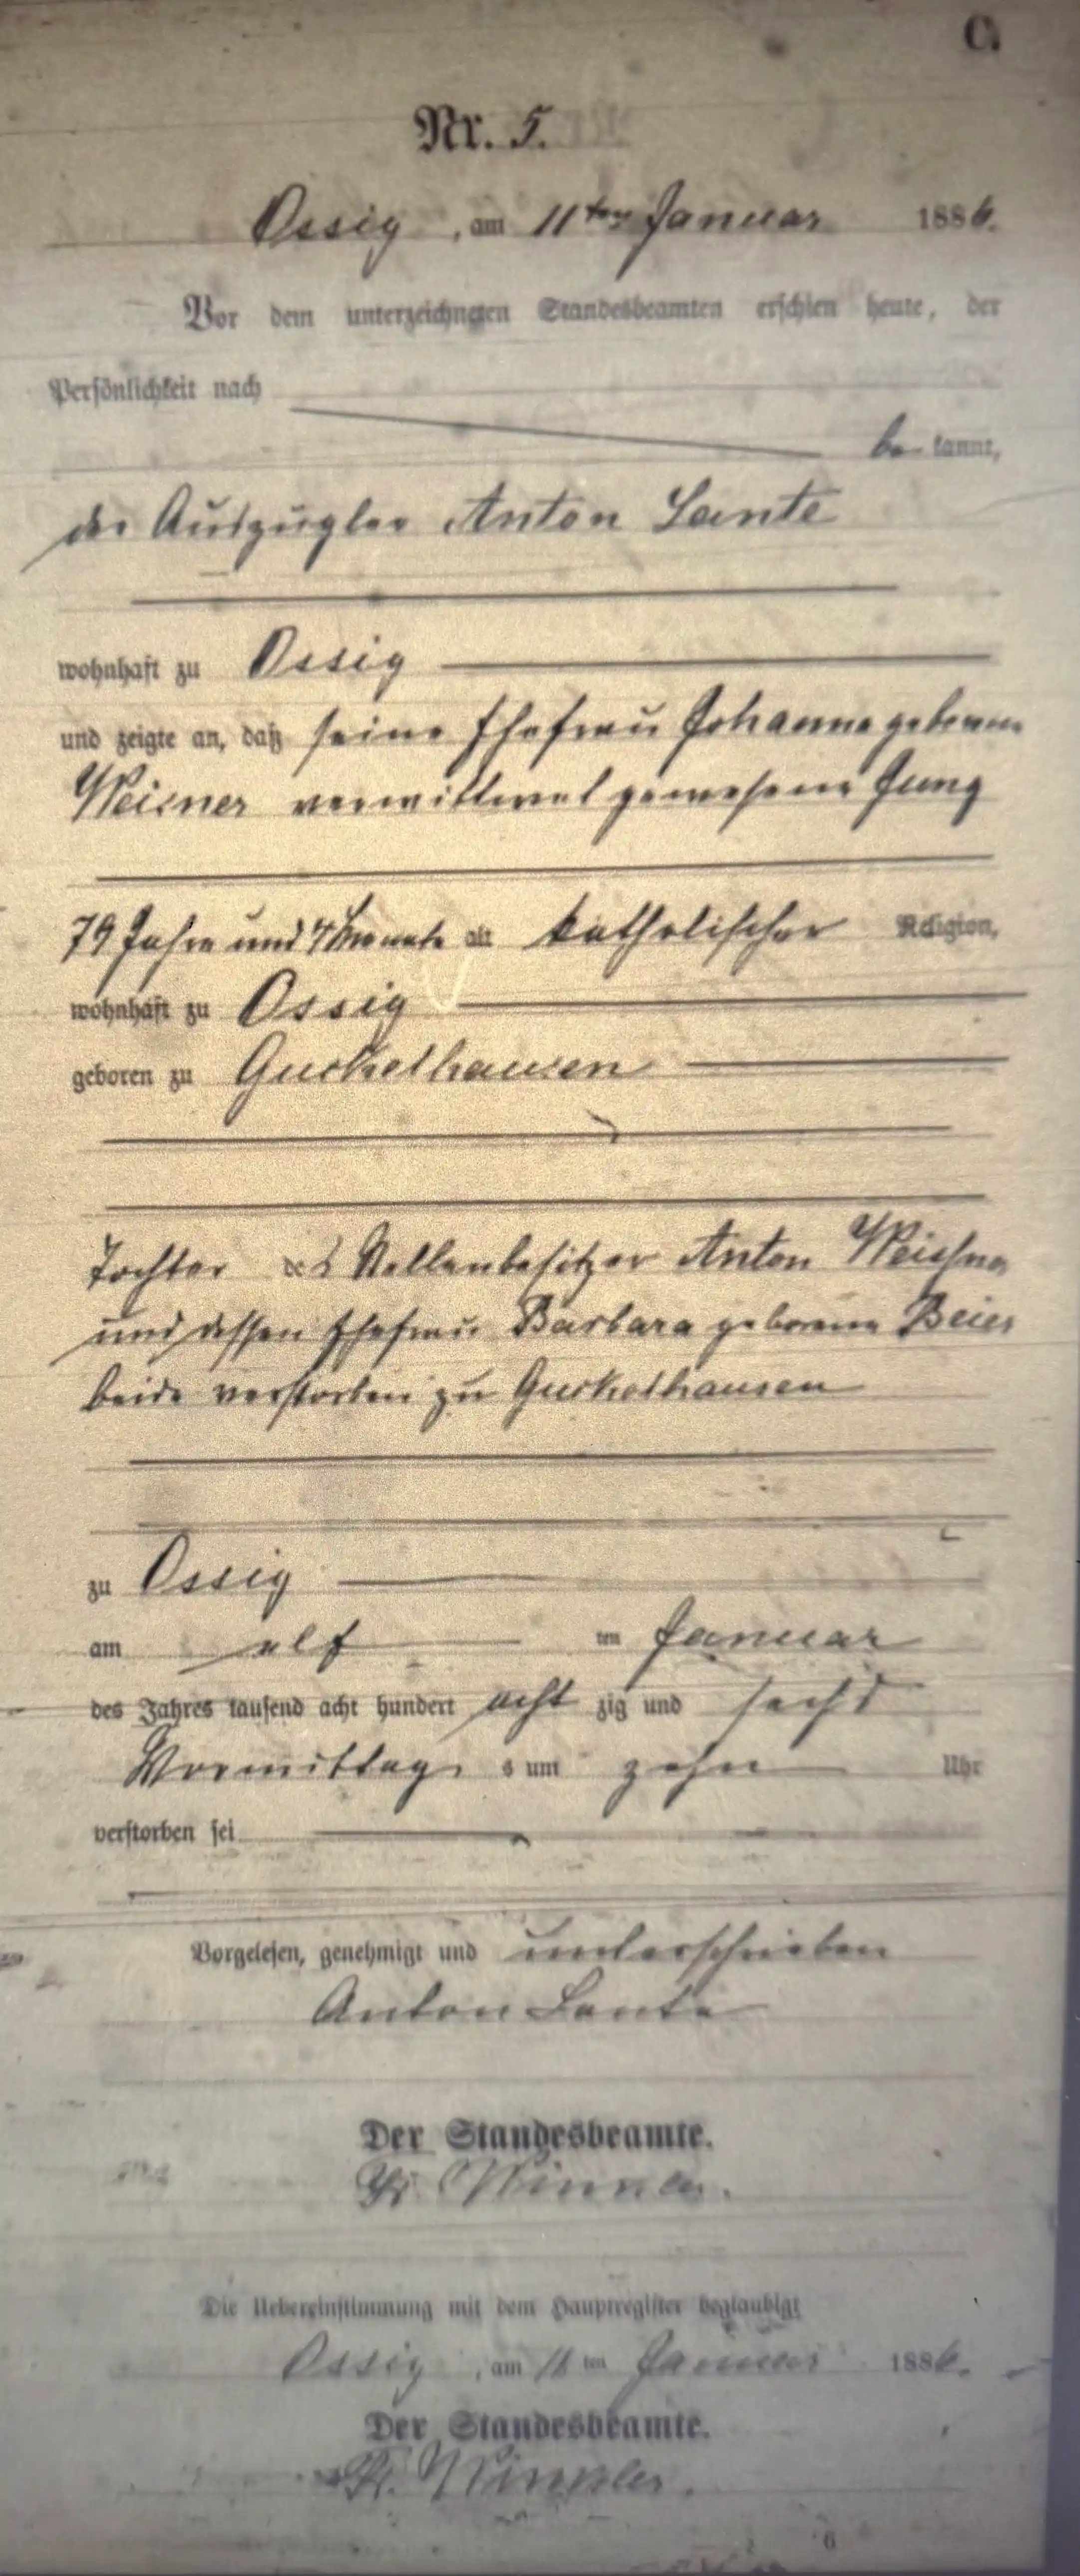 C.
Nr. 5.
Ossig, am 11ten Januar 1886.
Vor dem unterzeichneten Standesbeamten erschien heute, der
Persönlichkeit nach
be kannt,
der Auszügler Anton Lante
wohnhaft zu Ossig
und zeigte an, daß seine Ehefrau Johanna geborene
Weisner verwittwet gewesene Jung
79 Jahre und 4 Monate alt katholischer Religion,
wohnhaft zu Ossig
geboren zu Guckelhausen
Tochter des Stellenbesitzer Anton Weisner
und dessen Ehefrau Barbara geborene Beier
beide verstorben zu Guckelhausen
zu Ossig
am elf ten Januar
des Jahres tausend acht hundert acht zig und sechs
Vormittag s um zehn Uhr
verstorben sei
Vorgelesen, genehmigt und unterschrieben
Anton Lante
Der Standesbeamte.
Winkler.
Die Uebereinstimmung mit dem Hauptregister beglaubigt
Ossig, am 11 ten Januar 1886.
Der Standesbeamte.
Winkler.
6